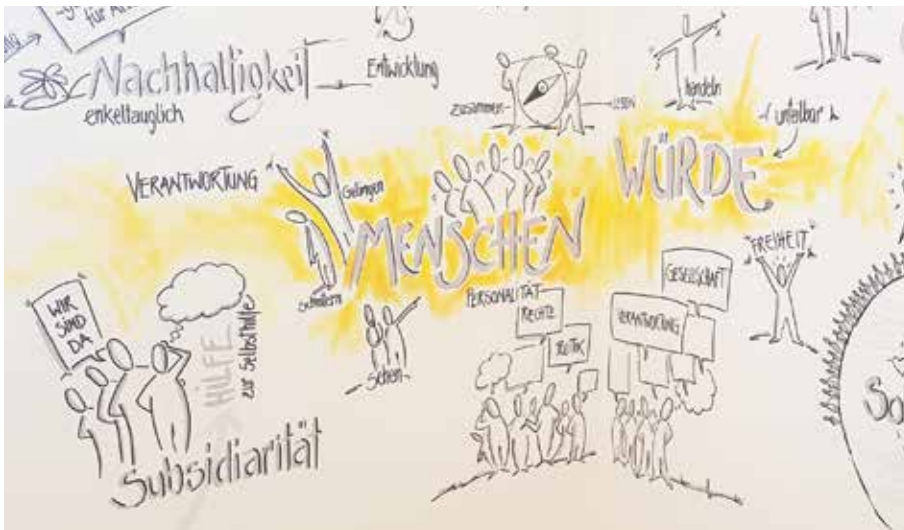 für
Nachhaltigkeit
enkeltauglich
Entwicklung
zusammen
LEBEN
handeln
unteilbar
WÜRDE
VERANTWORTUNG
Gelingen
MENSCHEN
Scheitern
Sehen
PERSONALITÄT
RECHTE
POLITIK
GESELLSCHAFT
VERANTWORTUNG
FREIHEIT
WIR
SIND
DA
HILFE
zur Selbsthilfe
Subsidiarität
So